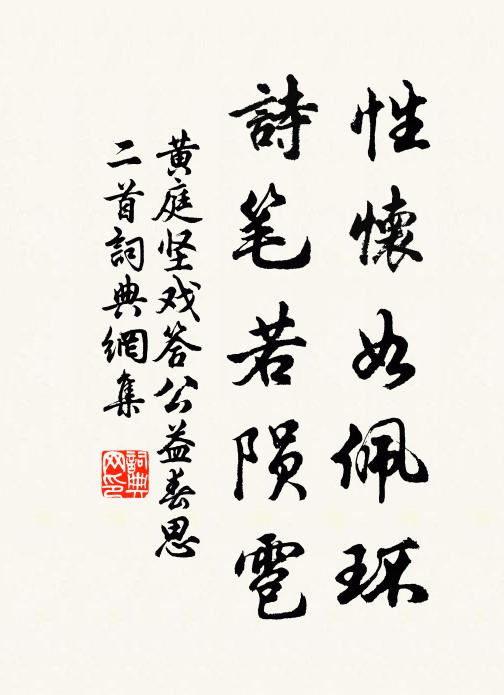 性懷如佩环
詩笔若陨雹
黄庭坚戏答公益春思
二首詞典網集
詞典
网印